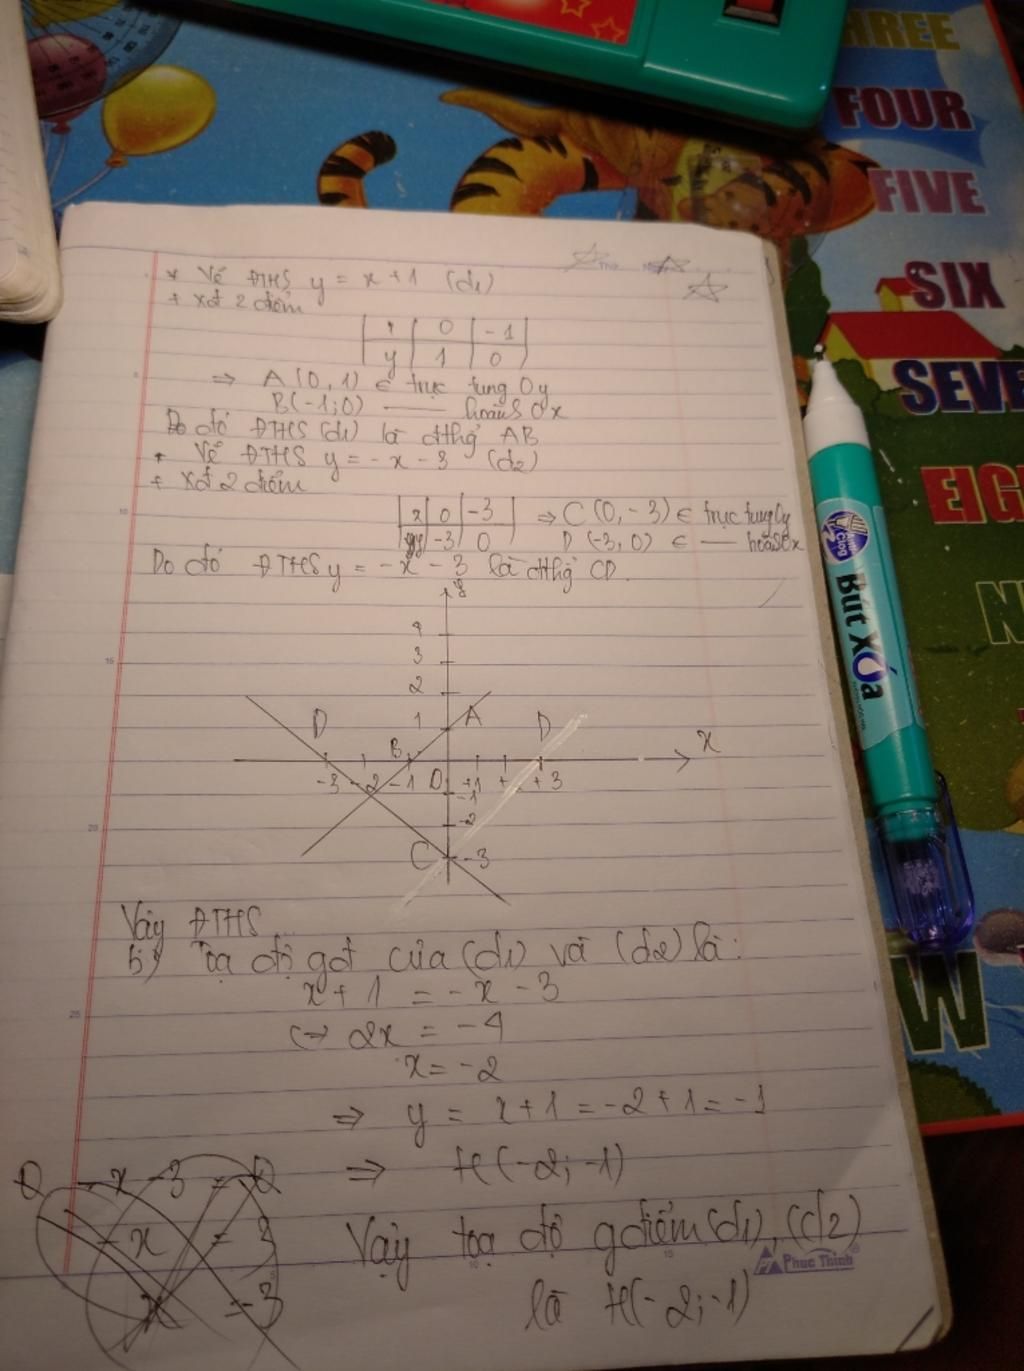 THREE
FOUR
FIVE
SIX
SEVE
EIG
N
W
* Vẽ ĐTHS y = x + 1 (d1)
+ Xđ 2 điểm
x 0 -1
y 1 0
=> A(0, 1) ∈ trục tung Oy
B(-1; 0) —— hoành Ox
Do đó ĐTHS (d1) là đthg AB
* Vẽ ĐTHS y = -x - 3 (d2)
+ Xđ 2 điểm
x 0 -3 => C(0, -3) ∈ trục tung Oy
y -3 0 D(-3, 0) ∈ —— hoành Ox
Do đó ĐTHS y = -x - 3 là đthg CD.
y
4
3
2
D 1 A D x
B
-3 -2 -1 O +1 + +3
-1
-2
C -3
Vậy ĐTHS ...
b) Toạ độ gđ của (d1) và (d2) là:
x + 1 = -x - 3
<=> 2x = -4
x = -2
=> y = x + 1 = -2 + 1 = -1
=> H(-2; -1)
Vậy toạ độ g điểm (d1), (d2)
là H(-2; -1)
-x - 3 = 0
-x = 3
x = -3
Phuc Thinh
5
10
15
20
25
Bút Xóa